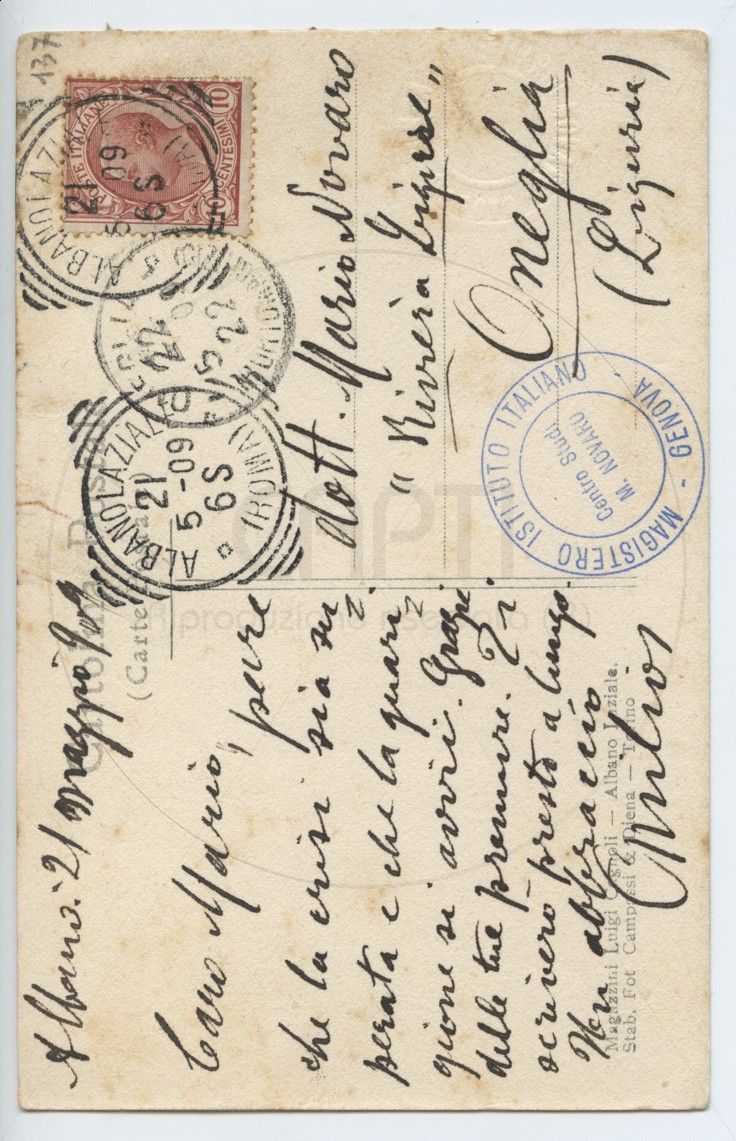 137
Cartolina Postale
(Carte
Albano. 21 maggio 909
Caro Mario, pare
che la crisi sia su-
perata e che la guari-
gione si avvii. Grazie
delle tue premure. Ti
scriverò presto a lungo.
Un abbraccio
Magazzini Luigi - Albano Laziale.
Stab. Fot Campassi & Diena - Torino
POSTE ITALIANE
10 CENTESIMI 10
ALBANO LAZIALE
21
5 -09
6S
(ROMA)
22
5
22
ALBANO LAZIALE
21
5 -09
6S
(ROMA)
dott. Mario Novaro
"Riviera Ligure"
Oneglia
(Liguria)
MAGISTERO ISTITUTO ITALIANO - GENOVA -
Centro Studi
M. NOVARO
Riproduzione riservata (C)